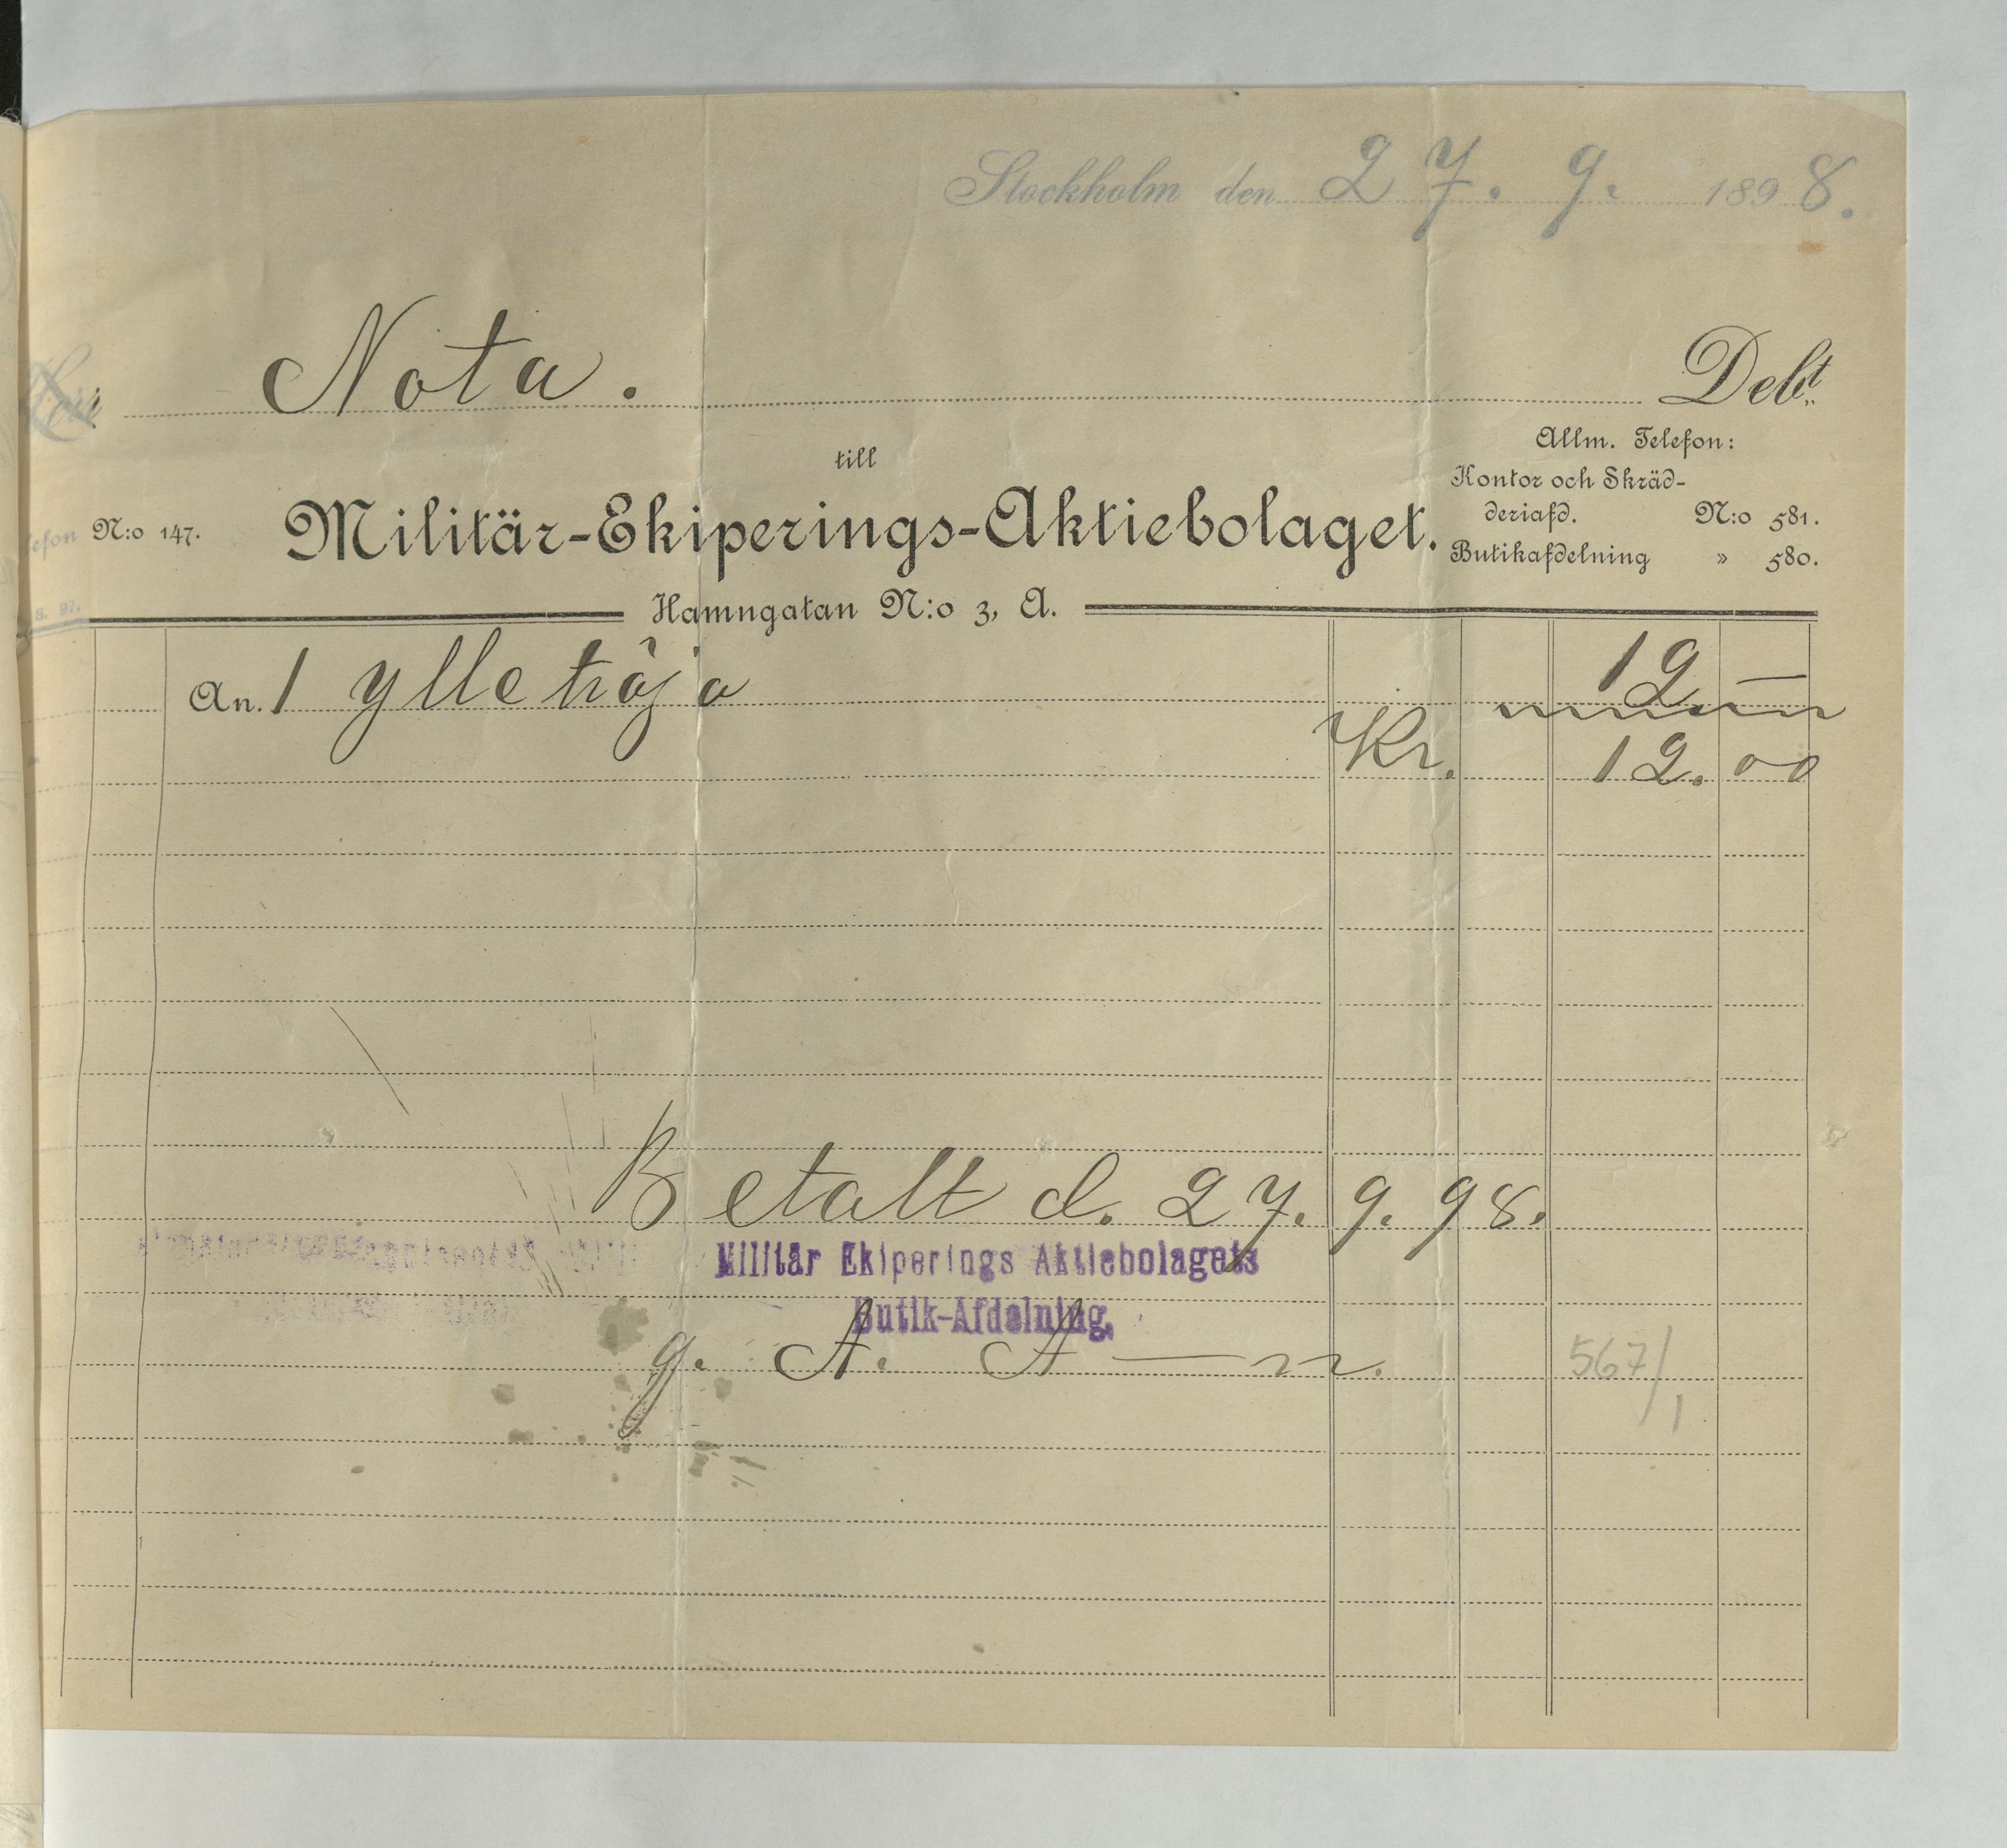 Stockholm den 27. 9. 1898.
Nota. Debt
till
Allm. Telefon:
Kontor och Skräd-
deriafd. N:o 581.
Butikafdelning » 580.
N:o 147.
Militär-Ekiperings-Aktiebolaget.
Hamngatan N:o 3, A.
An. 1 ylletröja 12 —
Kr. 12.00
Betalt d. 27. 9. 98.
Militär Ekiperings Aktiebolagets
Butik-Afdelning.
g. A. A——n.
567/1